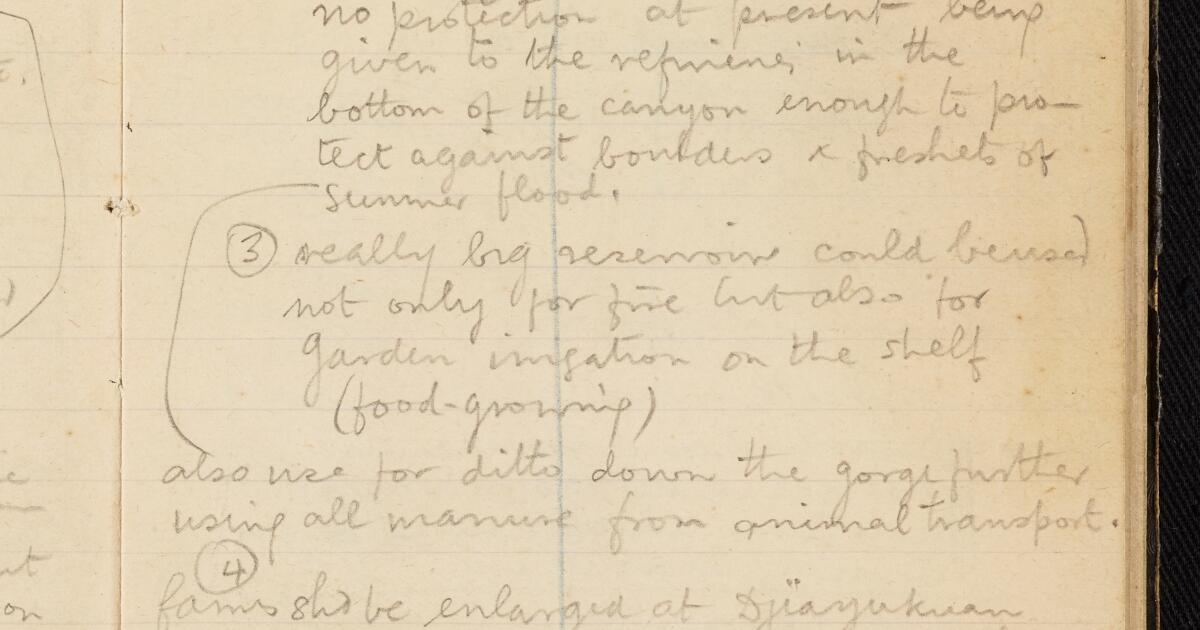 no protection at present being
given to the refineries in the
bottom of the canyon enough to pro-
tect against boulders & freshets of
summer flood.
③ really big reservoirs could be used
not only for fire but also for
garden irrigation on the shelf
(food-growing)
also use for ditto down the gorge further
using all manure from animal transport.
④
shd be enlarged at Djiayukuan